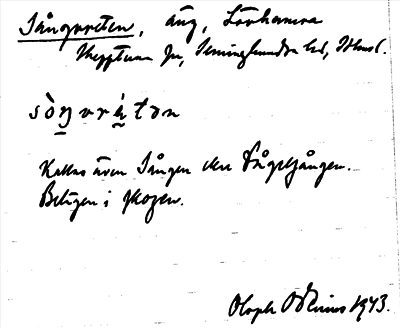 Sångvreten, äng, Lövhamra
Skepptuna sn, Seminghundra hd, Uppl.
sòŋvré̤tən
Kallas även Sången eller Fågelsången.
Belägen i skogen.
Oloph Odenius 1943.